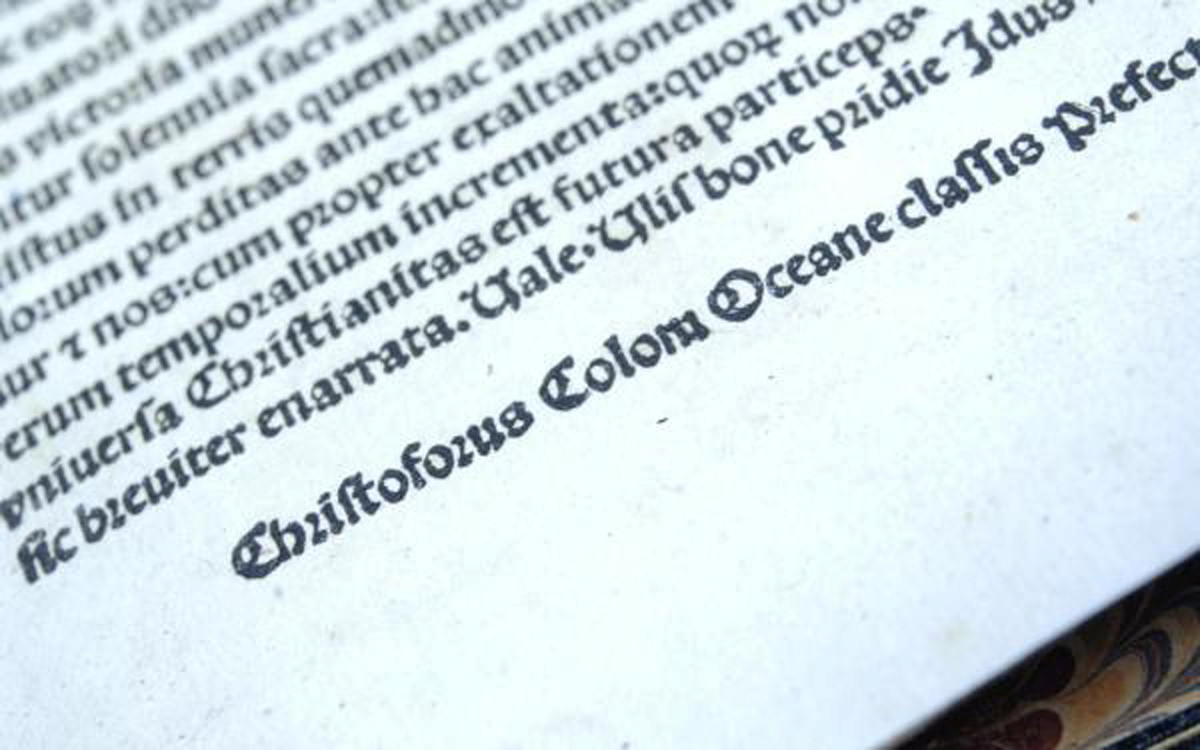 c eoꝝ
luatori dño
victoria muner
itur solennia sacra:
ristus in terris quemadmo
lorum perditas ante hac anima
mur ⁊ nos:cum propter exaltationem
rerum temporalium incrementa:quoꝝ no
vniuersa Christianitas est futura particeps.
sic breuiter enarrata.Vale.Ulisbone pridie Idus
Christoforus Colom Oceane classis Prefect